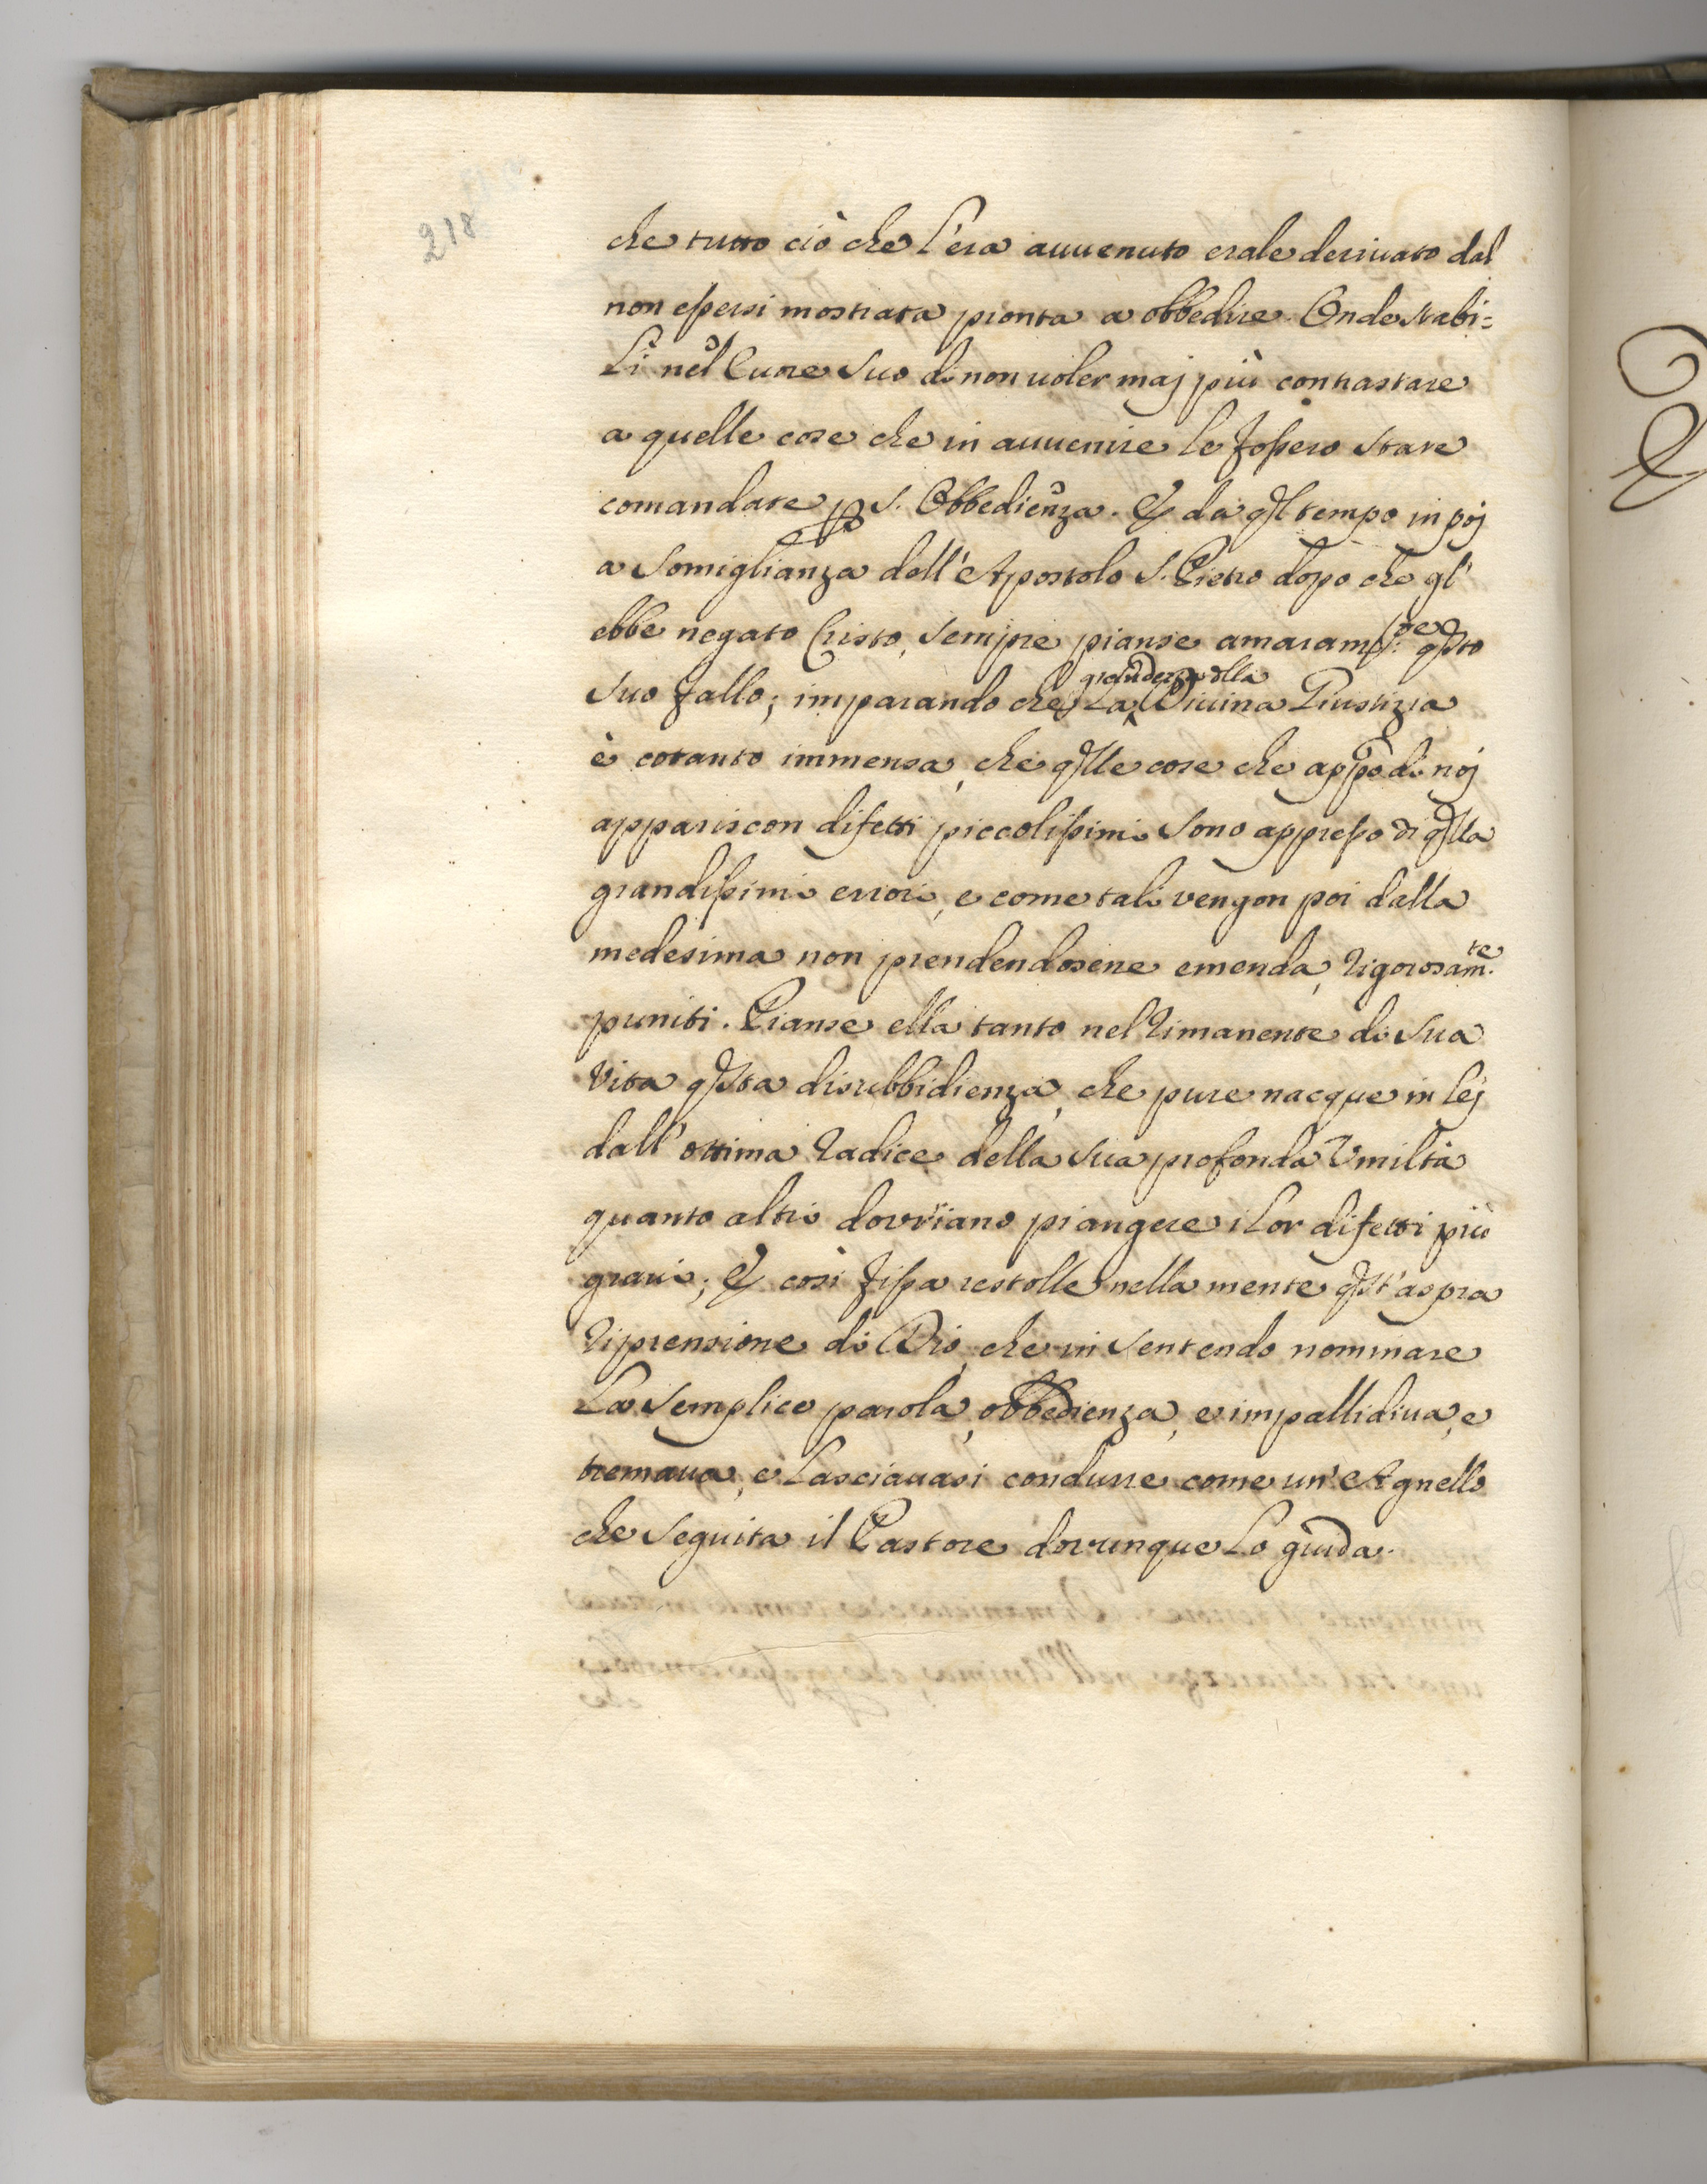 218
che tutto ciò che l'era auuenuto erale deriuato dal
non essersi mostrata pronta a obbedire. Onde stabi=
lì nel Cuore suo di non uoler maj più contrastare
a quelle cose che in auuenire le fossero state
comandate p S. Obbedienza. E da ql tempo in poj
a somiglianza dell'Apostolo S. Pietro dopo che gl'
ebbe negato Cristo, sempre pianse amaram.te qsto
suo fallo; imparando che la grandezza dlla Diuina Giustizia
è cotanto immensa, che qlle cose che appo di noj
appariscon difetti piccolissimi sono appresso di qlla
grandissimi errori, e come tali vengon poi dalla
medesima non prendendosene emenda, rigorosam.te
puniti. Pianse ella tanto nel rimanente di sua
Vita qsta disubbidienza, che pure nacque in lej
dall'ottima radice della sua profonda Vmiltà
quanto altri dovriano piangere i lor difetti più
graui; E così fissa restolle nella mente qst'aspra
riprensione di Dio, che in sentendo nominare
la semplice parola, obbedienza, e impallidiua, e
tremaua, e lasciauasi condurre come un'Agnello
che seguita il Pastore dovunque lo guida.